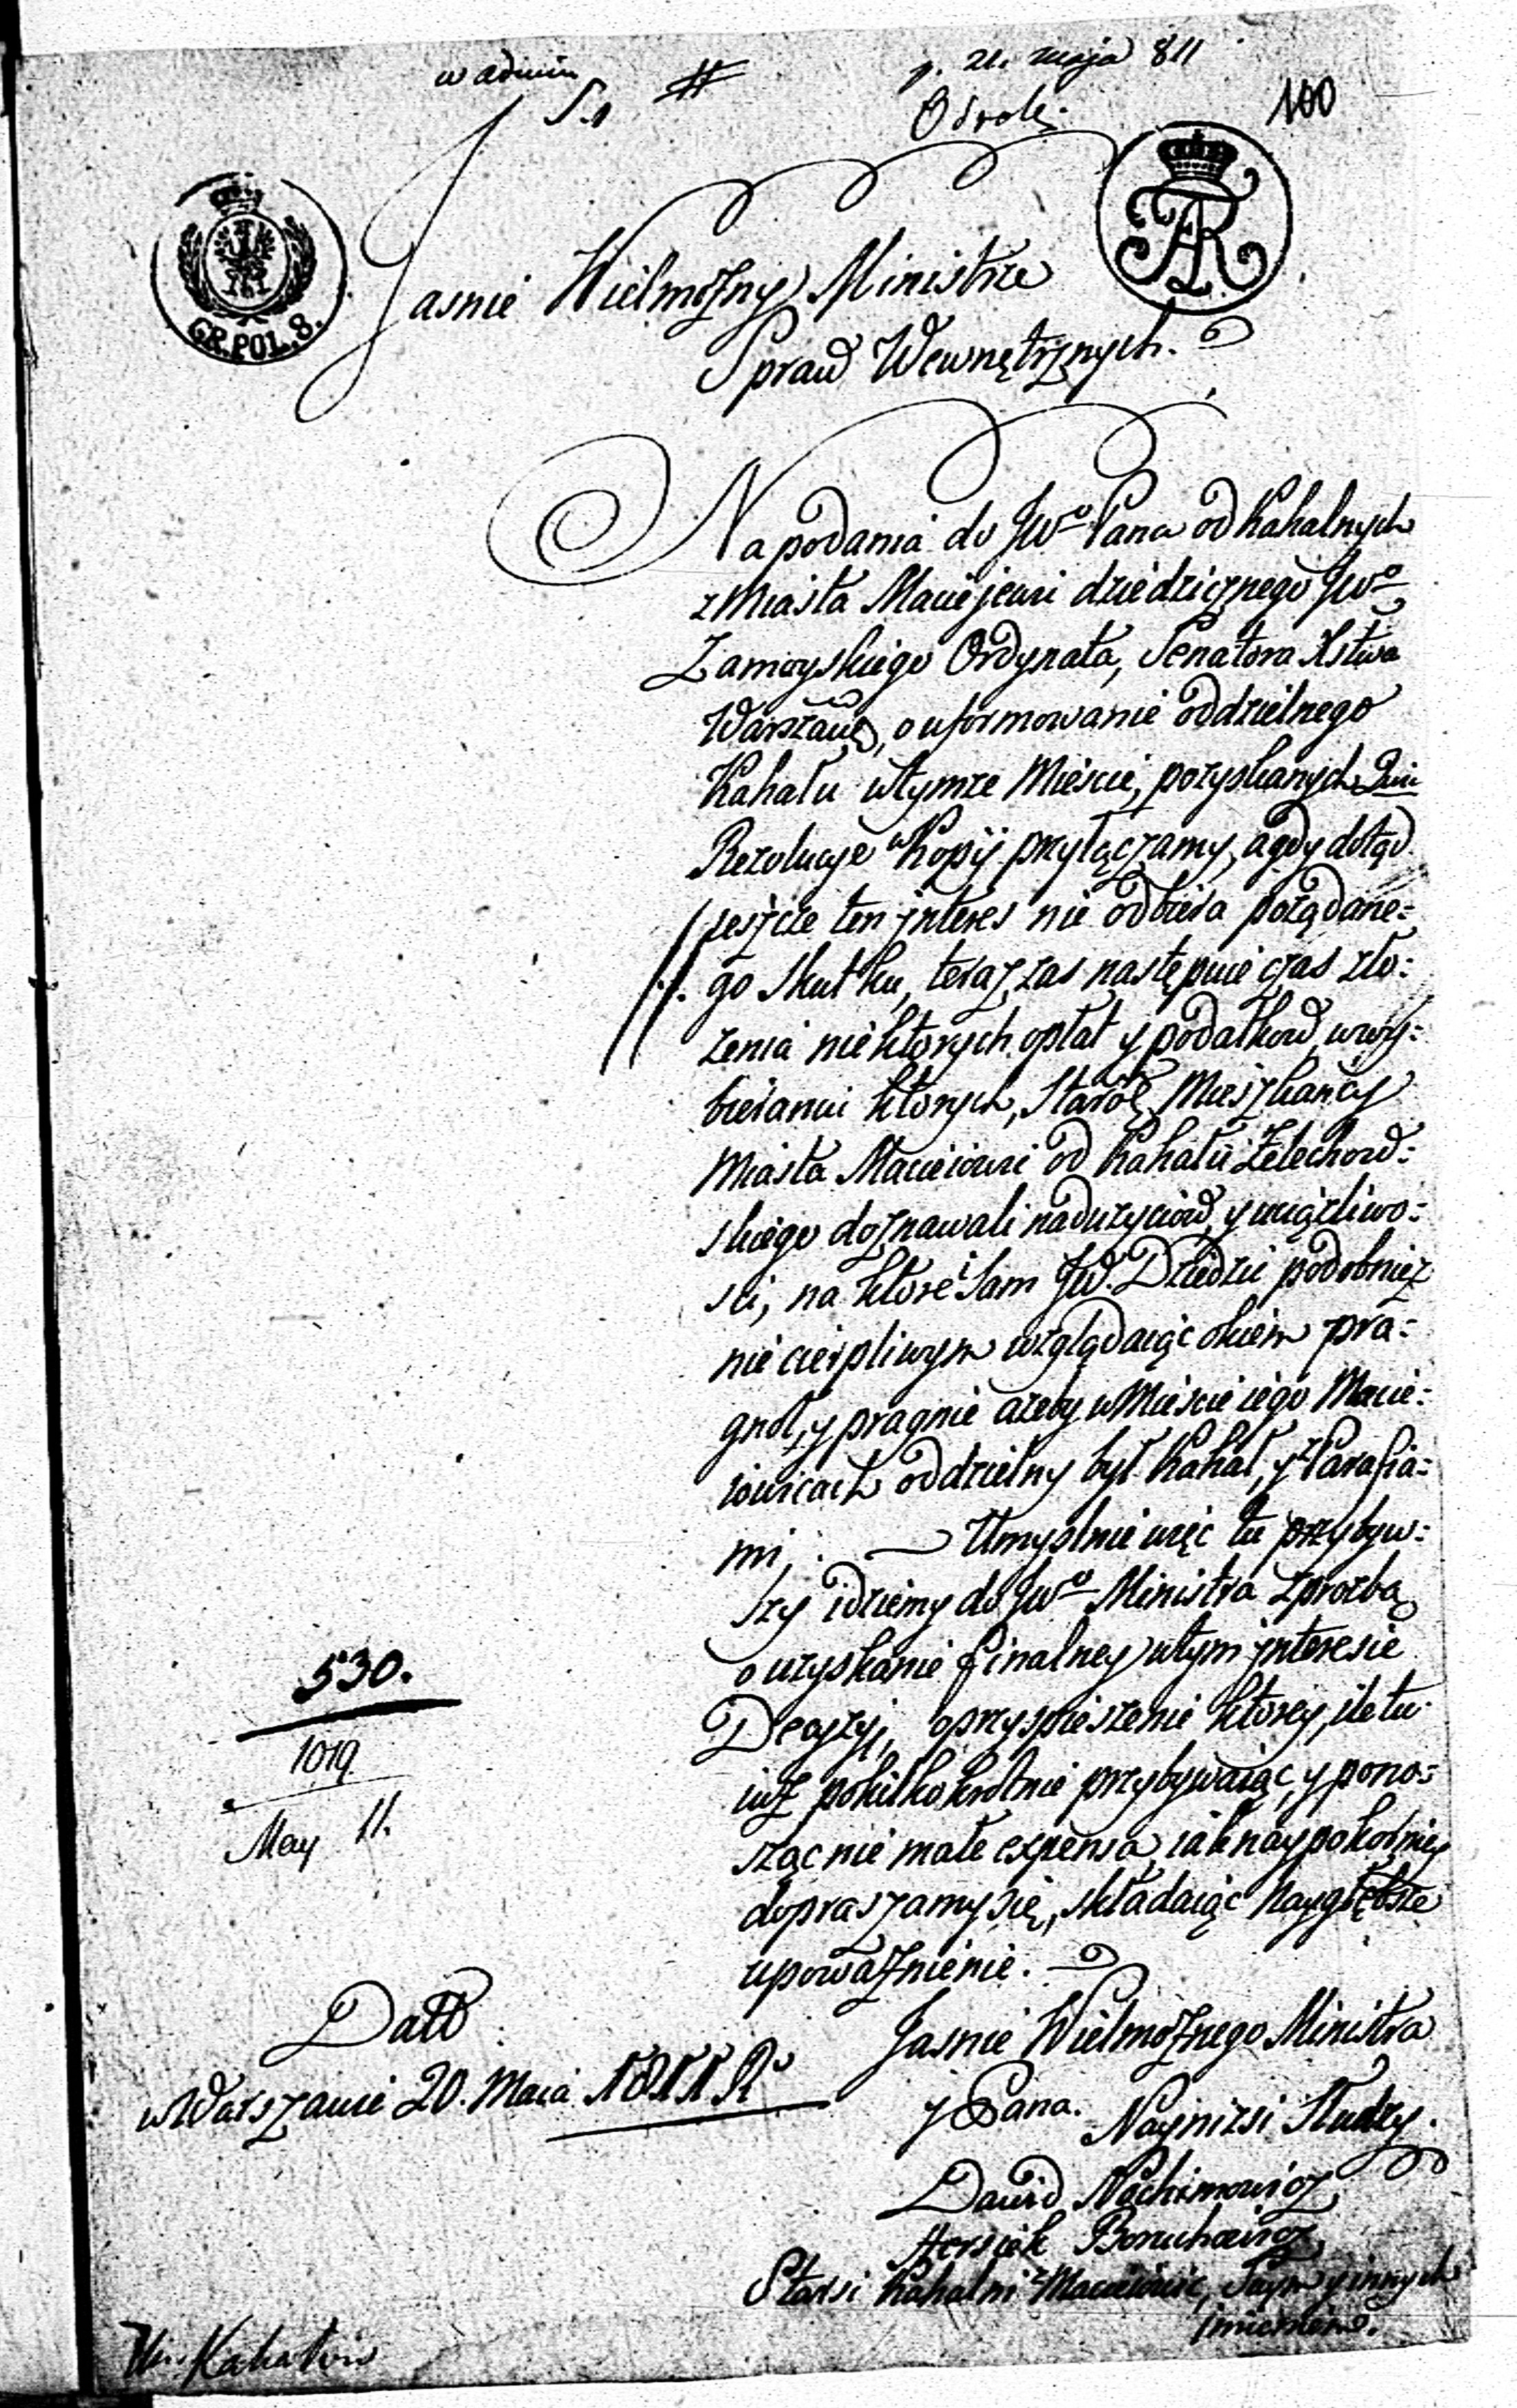 w admin
p. 21. maja 811
100
GR. POL. 8.
Jasnie Wielmożny Ministrze
Spraw Wewnętrznych.
Na podania do JWo Pana od Kahalnych
z Miasta Maciejewi dziedzicznego JWo
Zamoyskiego Ordynata, Senatora Xstwa
Warszaw, o uformowanie oddzielnego
Kahału w tymże Mieście, pozyskanych
Rezolucye w Kopij przyłączamy, a gdy dotąd
jeszcze ten jnteres nie odbiera pożądane=
go skutku, teraz zas następuie czas zło=
żenia niektorych opłat y podatkow, w wy=
bieraniu ktorych, Staroz. Mieszkańcy
Miasta Macieiowi od Kahału Żelechow=
skiego doznawali nadużyciow, y uciążliwo=
sci, na ktore i Sam JW. Dziedzic podobnież
nie cierpliwym wzglądaiąc okiem pra=
gnoł, y pragnie ażeby w Mieście iego Macie=
iowicach oddzielny był Kahał, y z Parafia=
mi, . — Umyslnie więc tu przybyw=
szy idziemy do JWo Ministra z prozbą
o uzyskanie finalney w tym jnteresie
Decyzyi, o przyspieszenie ktorey, ile tu
iuż pokilkokrotnie przybywaiąc, y pono=
sząc nie małe expensa, iak naypokorniey
dopraszamy się, składaiąc naygłębsze
upoważnienie.
530.
1019
May 11.
Jasnie Wielmożnego Ministra
y Pana.
Nayniżsi Słudzy.
Datt
w Warszawie 20. Maia 1811 Ro
Dawid Nochimowicz
Hersiek Boruchowicz
Starsi Kahalni z Macieiowic, Swym y innych
imieniem.
Kahałow